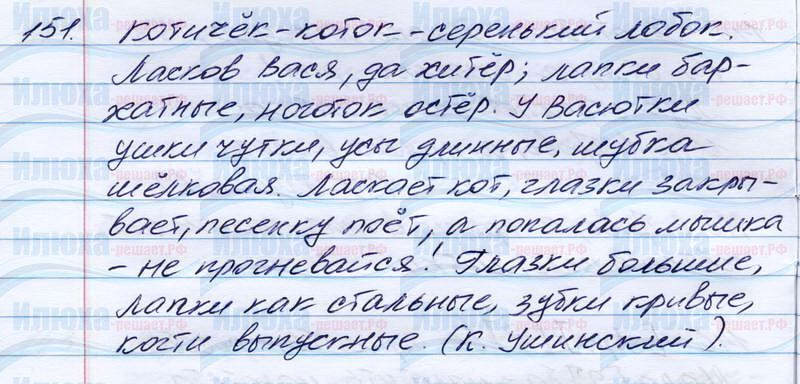 151. Котичек-коток-серенький лобок.
Ласков Вася, да хитёр; лапки бар-
хатные, ноготок остёр. У Васютки
ушки чутки, усы длинные, шубка
шёлковая. Ласкает кот, глазки закры-
вает, песенку поёт, а попалась мышка
- не прогневайся! Глазки большие,
лапки как стальные, зубки кривые,
когти выпускные. (К. Ушинский).
Илюха-решает.РФ